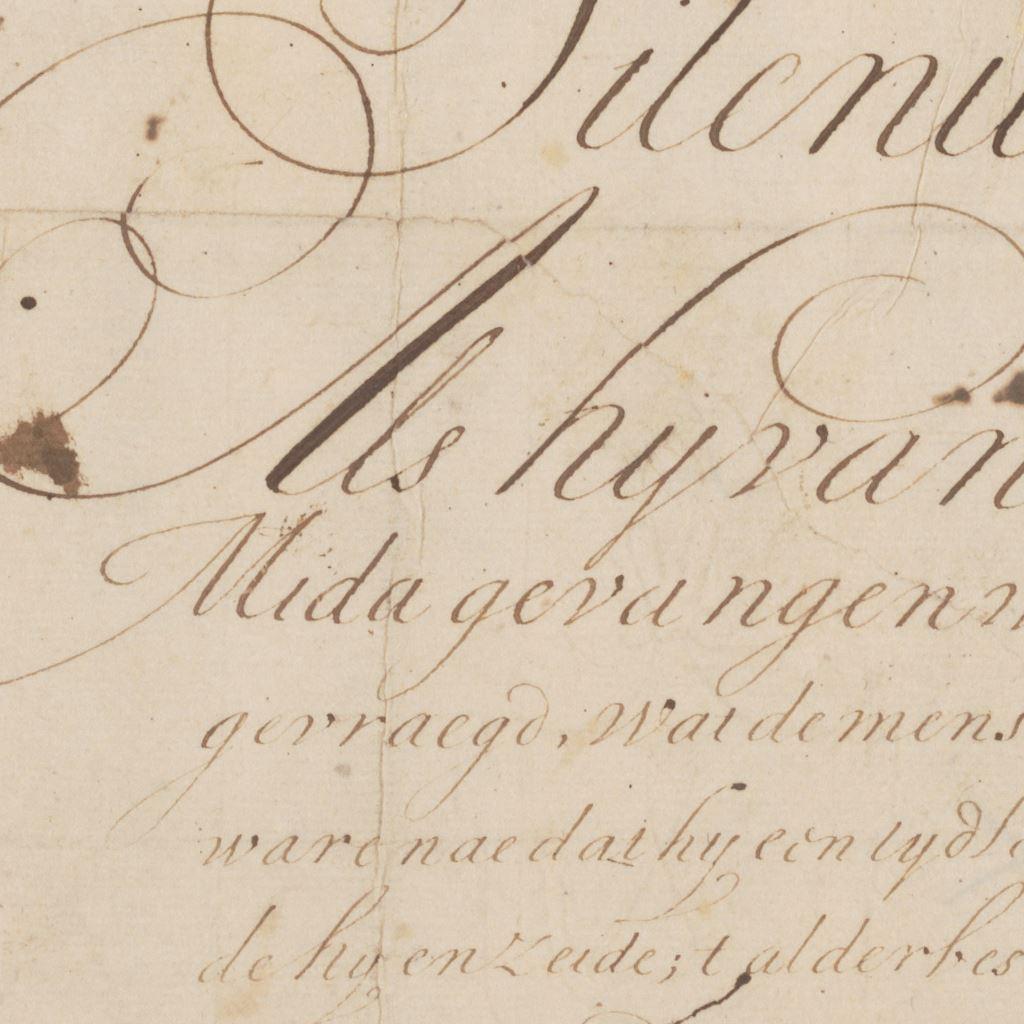 Silenu
Als hy van
Mida gevangen
gevraegd, wat de mens
ware nae dat hy een tyd
de hy en zeide; t alderbes